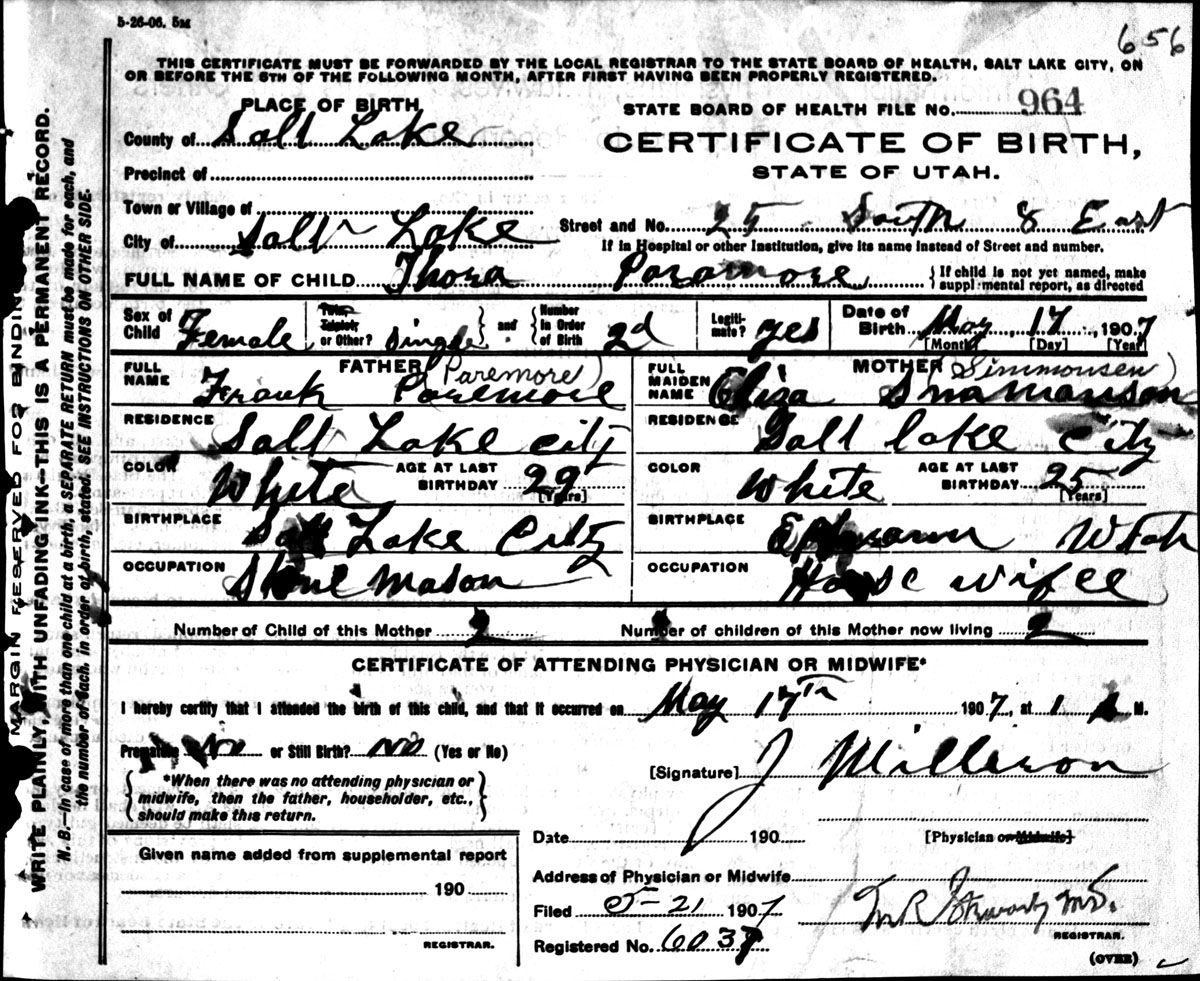 5-26-06. 5M
656
THIS CERTIFICATE MUST BE FORWARDED BY THE LOCAL REGISTRAR TO THE STATE BOARD OF HEALTH, SALT LAKE CITY, ON
OR BEFORE THE 5TH OF THE FOLLOWING MONTH, AFTER FIRST HAVING BEEN PROPERLY REGISTERED.
MARGIN RESERVED FOR BINDING
WRITE PLAINLY, WITH UNFADING INK—THIS IS A PERMANENT RECORD.
N. B.—In case of more than one child at a birth, a SEPARATE RETURN must be made for each, and
the number of each, in order of birth, stated. SEE INSTRUCTIONS ON OTHER SIDE.
PLACE OF BIRTH
STATE BOARD OF HEALTH FILE No. 964
County of Salt Lake
CERTIFICATE OF BIRTH,
Precinct of
STATE OF UTAH.
Town or Village of
City of Salt Lake
Street and No. 25 South 8 East
If in Hospital or other Institution, give its name instead of Street and number.
FULL NAME OF CHILD Thora Paramore
{If child is not yet named, make
supplemental report, as directed
Sex of Child Female
Twin, Triplet, or Other? single } and { Number in Order of Birth 2d
Legitimate? yes
Date of Birth May 17, 1907
[Month] [Day] [Year]
FATHER (Paremore)
FULL NAME Frank Paremore
MOTHER (Simmonsen)
FULL MAIDEN NAME Eliza
RESIDENCE Salt Lake city
RESIDENCE Salt lake City
COLOR White AGE AT LAST BIRTHDAY 29 [Years]
COLOR White AGE AT LAST BIRTHDAY 25 [Years]
BIRTHPLACE Salt Lake City
BIRTHPLACE Utah
OCCUPATION Stone Mason
OCCUPATION House wifee
Number of Child of this Mother 2 Number of children of this Mother now living 2
CERTIFICATE OF ATTENDING PHYSICIAN OR MIDWIFE*
I hereby certify that I attended the birth of this child, and that it occurred on May 17th 1907, at 1 A M.
Premature No or Still Birth? No (Yes or No)
{*When there was no attending physician or
midwife, then the father, householder, etc.,
should make this return.}
[Signature] J Milleson
Date 190
[Physician or Midwife]
Given name added from supplemental report
190
REGISTRAR.
Address of Physician or Midwife
Filed 5-21 1907
M.D.
REGISTRAR.
Registered No. 6037
(OVER)